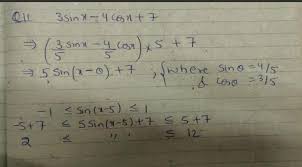 Q11. 3sinx - 4cosx + 7
⇒ (3/5 sinx - 4/5 cosx) × 5 + 7
⇒ 5 sin(x-θ) + 7, { where sinθ = 4/5
& cosθ = 3/5
-1 ≤ sin(x-5) ≤ 1
-5+7 ≤ 5sin(x-5)+7 ≤ 5+7
2 ≤ " " ≤ 12